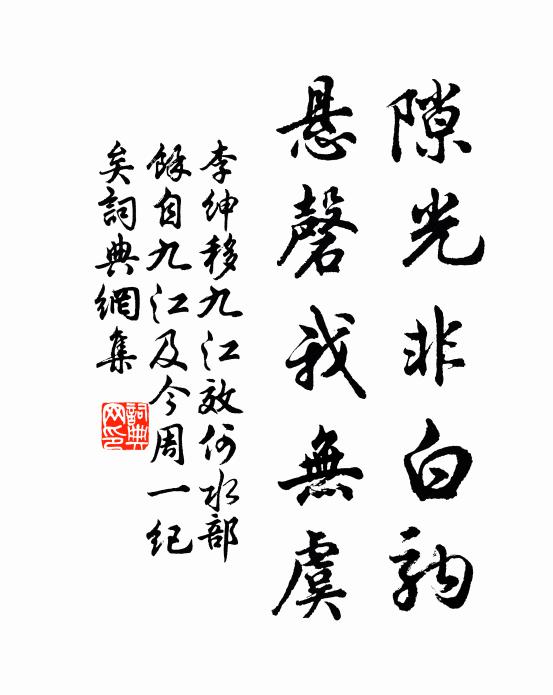 隙光非白駒
悬磬我無虞
李紳移九江效何水部
餘自九江及今周一紀
矣詞典網集
詞典
网印